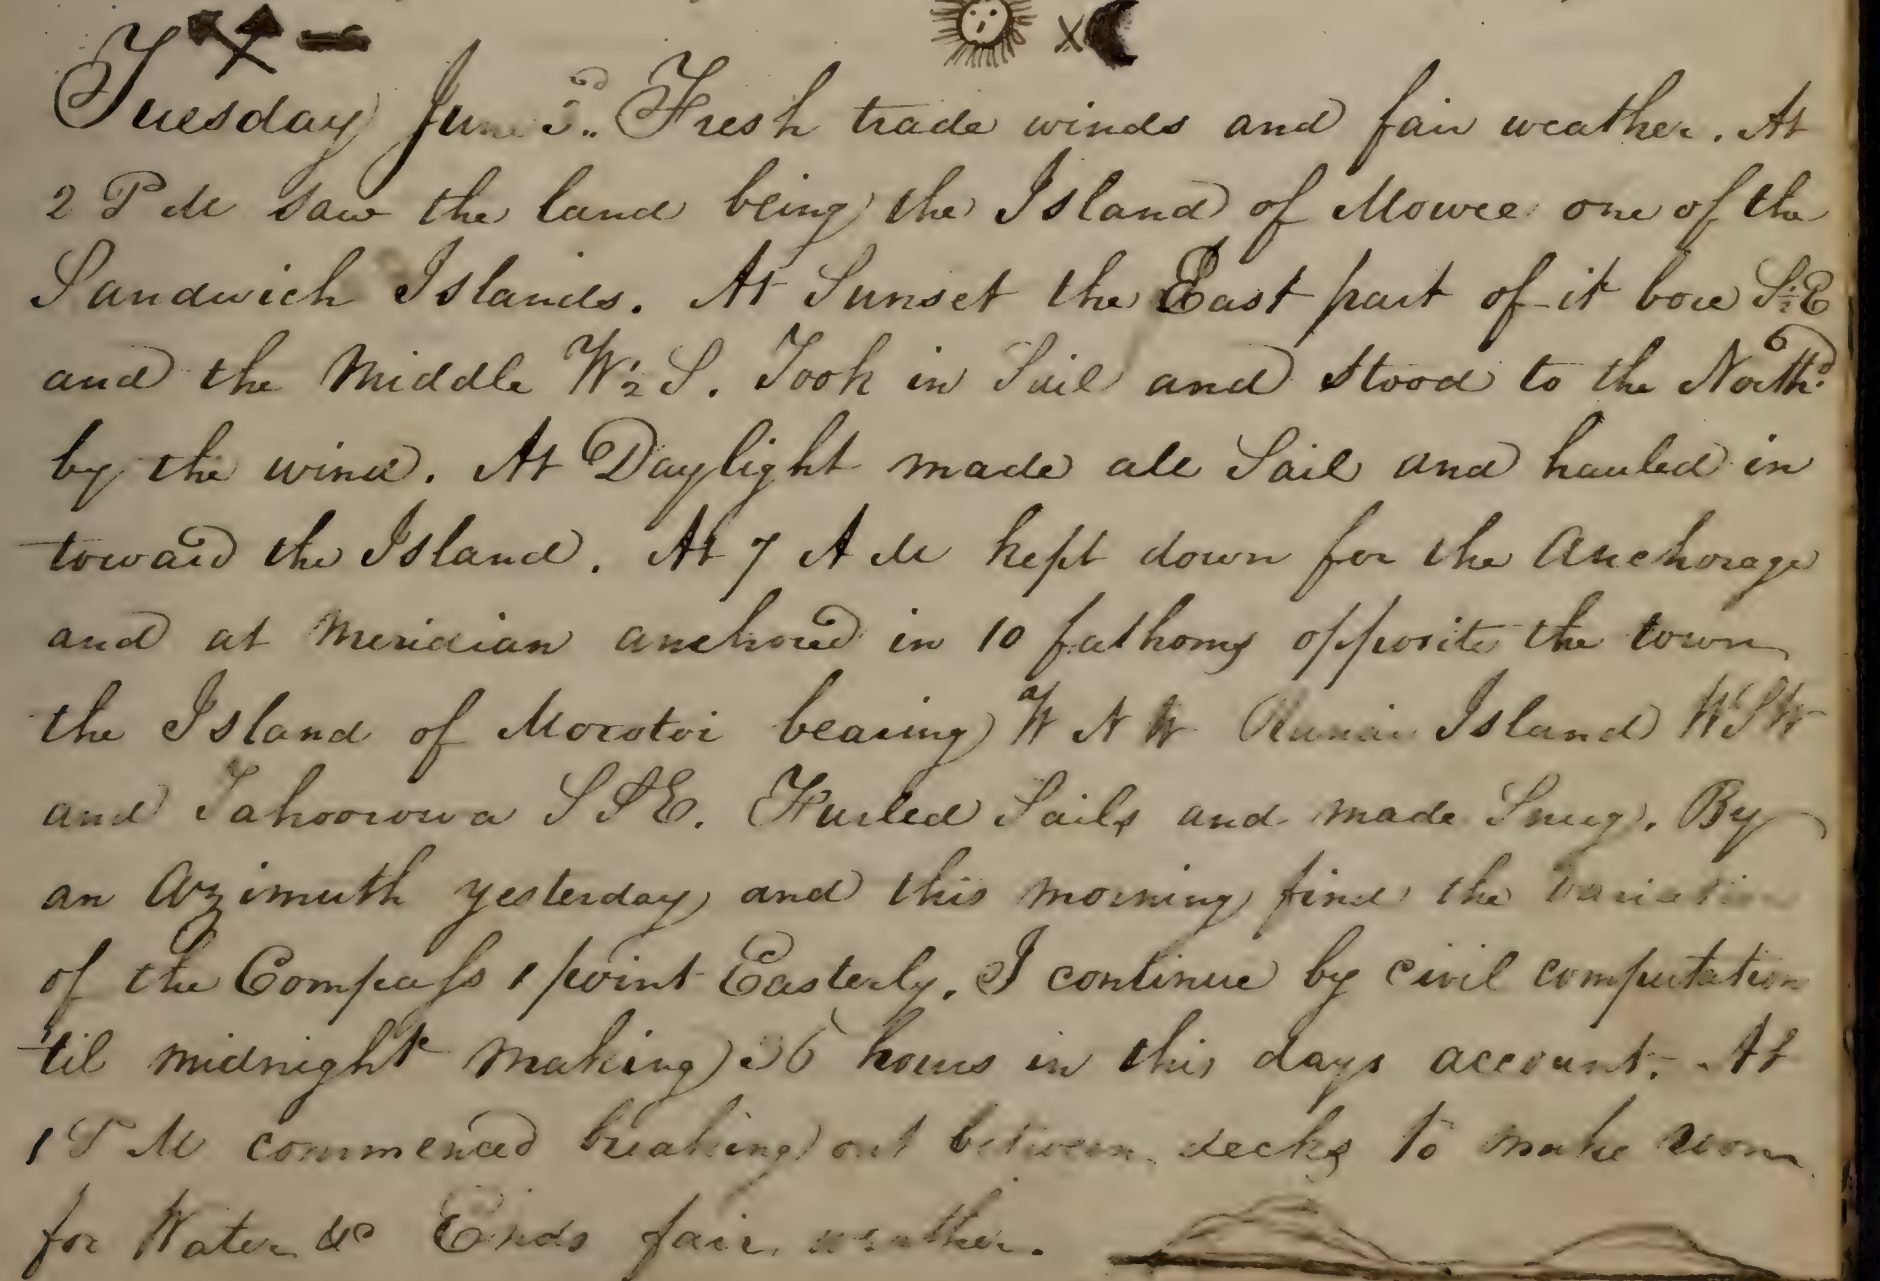 Tuesday June 3d.. Fresh trade winds and fair weather. At
2 P M saw the land being the Island of Mowee one of the
Sandwich Islands. At Sunset the East part of it bore S½E
and the Middle W½S. Took in Sail and stood to the Northd
by the wind. At Daylight made all Sail and hauled in
toward the Island. At 7 A M kept down for the Anchorage
and at Meridian anchored in 10 fathoms opposite the town
the Island of Morotoi bearing W N W Ranai Island WSW
and Tahoorowa S S E. Furled Sails and made Snug. By
an Azimuth yesterday and this morning find the variation
of the Compass 1 point Easterly. I continue by civil computation
'til midnight making 36 hours in this days account. At
1 P M commenced breaking out between decks to make room
for Water &c Ends fair weather.